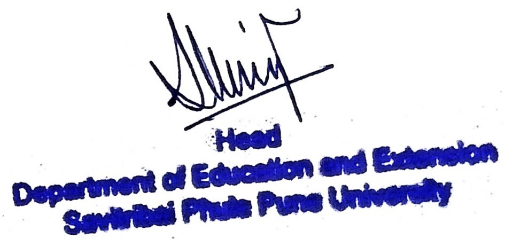 Head
Department of Education and Extension
Savitribai Phule Pune University